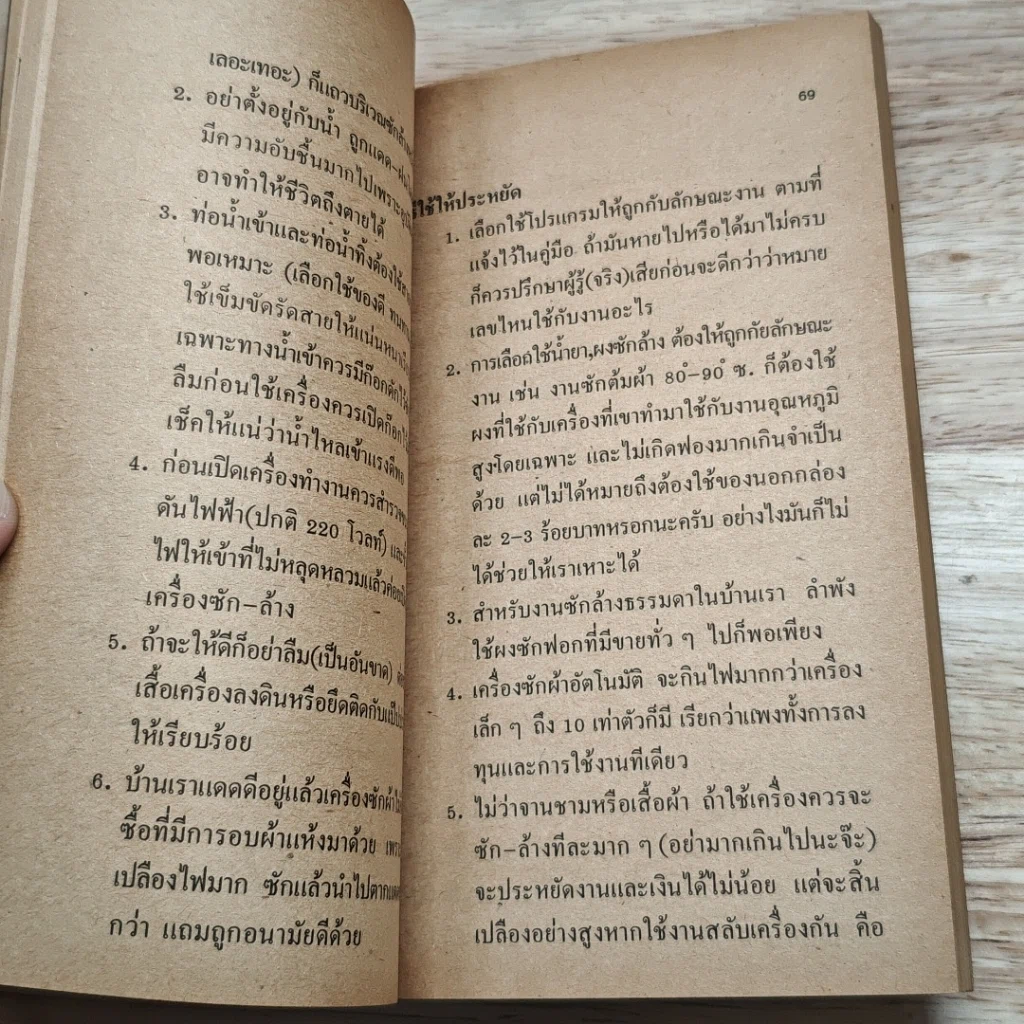 เลอะเทอะ) ก็แถวบริเวณซักล้าง
2. อย่าตั้งอยู่กับน้ำ ถูกแดด-ฝน
มีความอับชื้นมากไปเพราะ
อาจทำให้ชีวิตถึงตายได้
3. ท่อน้ำเข้าและท่อน้ำทิ้งต้องใช้
พอเหมาะ (เลือกใช้ของดี ทนทาน
ใช้เข็มขัดรัดสายให้แน่นหนา
เฉพาะทางน้ำเข้าควรมีก๊อกดัก
ลืมก่อนใช้เครื่องควรเปิดก็อก
เช็คให้แน่ว่าน้ำไหลเข้าแรงดีพอ
4. ก่อนเปิดเครื่องทำงานควรสำรวจ
ดันไฟฟ้า(ปกติ 220 โวลท์) และ
ไฟให้เข้าที่ไม่หลุดหลวมแล้วค่อย
เครื่องซัก-ล้าง
5. ถ้าจะให้ดีก็อย่าลืม(เป็นอันขาด)
เสื้อเครื่องลงดินหรือยึดติดกับ
ให้เรียบร้อย
6. บ้านเราแดดดีอยู่แล้วเครื่องซักผ้า
ซื้อที่มีการอบผ้าแห้งมาด้วย
เปลืองไฟมาก ซักแล้วนำไปตาก
กว่า แถมถูกอนามัยดีด้วย
69
ใช้ให้ประหยัด
1. เลือกใช้โปรแกรมให้ถูกกับลักษณะงาน ตามที่
แจ้งไว้ในคู่มือ ถ้ามันหายไปหรือได้มาไม่ครบ
ก็ควรปรึกษาผู้รู้(จริง)เสียก่อนจะดีกว่าว่าหมาย
เลขไหนใช้กับงานอะไร
2. การเลือกใช้น้ำยา,ผงซักล้าง ต้องให้ถูกกัยลักษณะ
งาน เช่น งานซักต้มผ้า 80°-90° ซ. ก็ต้องใช้
ผงที่ใช้กับเครื่องที่เขาทำมาใช้กับงานอุณหภูมิ
สูงโดยเฉพาะ และไม่เกิดฟองมากเกินจำเป็น
ด้วย แต่ไม่ได้หมายถึงต้องใช้ของนอกกล่อง
ละ 2-3 ร้อยบาทหรอกนะครับ อย่างไงมันก็ไม่
ได้ช่วยให้เราเหาะได้
3. สำหรับงานซักล้างธรรมดาในบ้านเรา ลำพัง
ใช้ผงซักฟอกที่มีขายทั่ว ๆ ไปก็พอเพียง
4. เครื่องซักผ้าอัตโนมัติ จะกินไฟมากกว่าเครื่อง
เล็ก ๆ ถึง 10 เท่าตัวก็มี เรียกว่าแพงทั้งการลง
ทุนและการใช้งานทีเดียว
5. ไม่ว่าจานชามหรือเสื้อผ้า ถ้าใช้เครื่องควรจะ
ซัก-ล้างทีละมาก ๆ (อย่ามากเกินไปนะจ๊ะ)
จะประหยัดงานและเงินได้ไม่น้อย แต่จะสิ้น
เปลืองอย่างสูงหากใช้งานสลับเครื่องกัน คือ